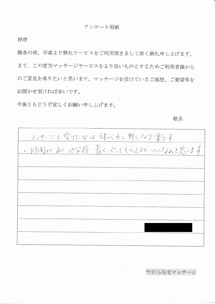 アンケート用紙
拝啓
陽春の候、平素より弊社サービスをご利用頂きまして厚く御礼申し上げます。
さて、この度当マッサージサービスをより良いものとするためご利用者様から
のご意見を承りたいと思います。マッサージを受けていたご感想、ご要望等を
お聞かせ頂ければ幸いです。
今後ともどうぞ宜しくお願い申し上げます。
敬具
マッサージを受けた日は体がかるく
時間が
もらえると いいなあと思います
やわら在宅マッサージ